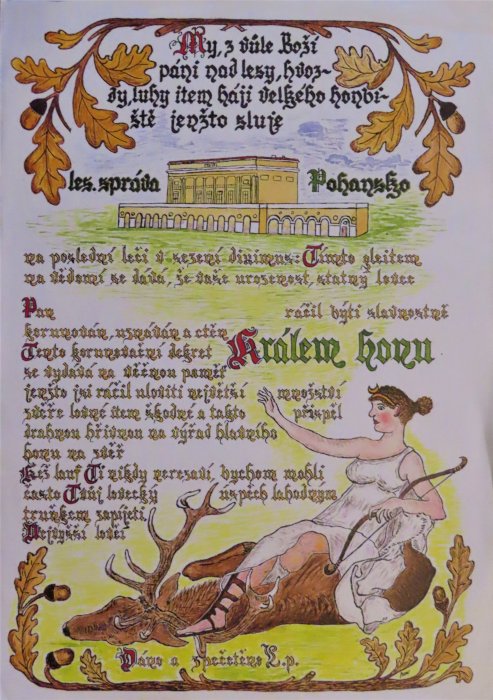 My, z vůle Boží
páni nad lesy, hvoz-
dy, luhy item háji velkého honbi-
ště jenžto sluje
les. správa Pohansko
na poslední leči v sezení diximus: Tímto glejtem
na vědomí se dává, že vaše urozenost, statný lovec
Pan ráčil býti slavnostně
korunován, uznáván a ctěn
Králem honu
Tento korunovační dekret
se vydává na věčnou paměť
jenžto jsi ráčil uloviti největší množství
zvěře lovné item škodné a takto přispěl
drahnou hřivnou na výřad hlavního
honu na zvěř
Kéž lauf Ti nikdy nerezaví bychom mohli
často Tvůj lovecký úspěch lahodným
truňkem zapíjeti
Nejvyšší lovčí
Dáno a zpečetěno L.p.